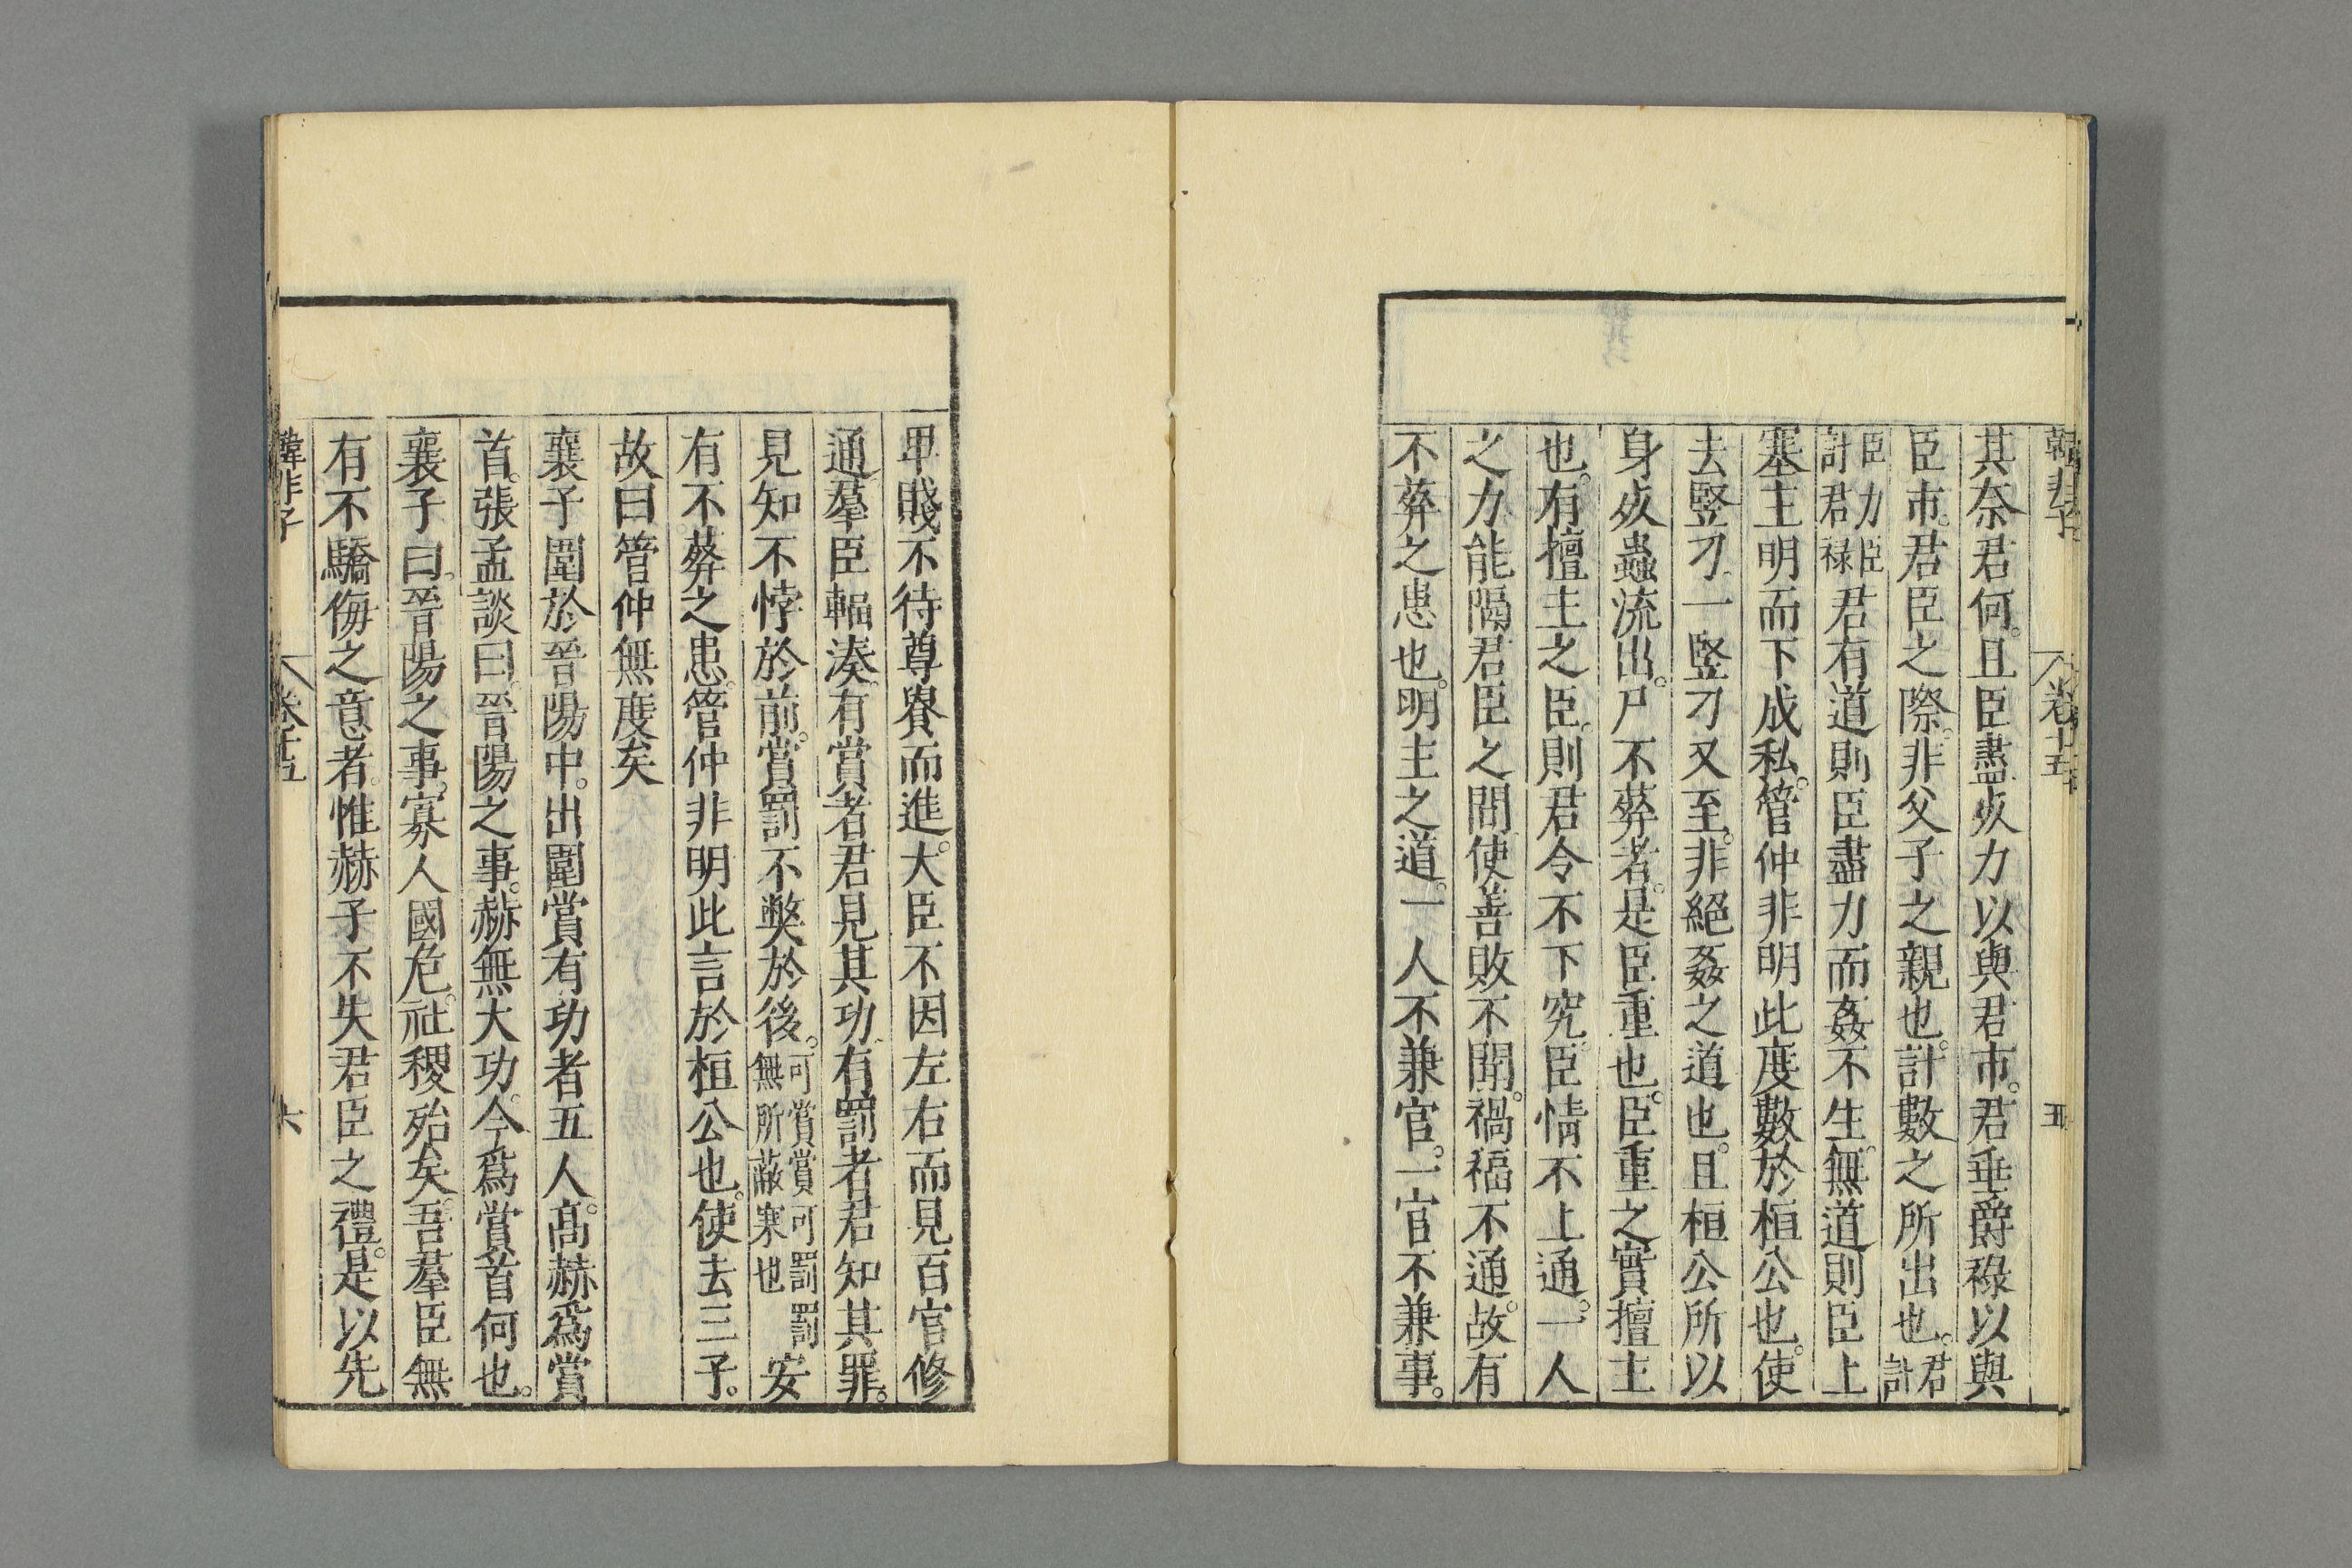 韓非子 卷十五 五
其奈君何。且臣盡死力以與君市。君垂爵祿以與
臣市。君臣之際。非父子之親也。計數之所出也。君計
臣力臣計君祿君有道則臣盡力而姦不生。無道則臣上
塞主明而下成私。管仲非明此度數於桓公也。使
去竪刁。一竪刁又至。非絕姦之道也。且桓公所以
身死蟲流出。尸不葬者。是臣重也。臣重之實擅主
也。有擅主之臣。則君令不下究。臣情不上通。一人
之力能隔君臣之間使善敗不聞。禍福不通。故有
不葬之患也。明主之道。一人不兼官。一官不兼事。
卑賤不待尊貴而進。大臣不因左右而見百官修
通羣臣輻湊。有賞者君見其功。有罰者君知其罪。
見知不悖於前。賞罰不獘於後。可賞賞可罰罰無所蔽塞也安
有不葬之患。管仲非明此言於桓公也。使去三子。
故曰管仲無度矣
襄子圍於晉陽中。出圍賞有功者五人。高赫爲賞
首。張孟談曰。晉陽之事。赫無大功。今爲賞首何也。
襄子曰。晉陽之事。寡人國危。社稷殆矣。吾羣臣無
有不驕侮之意者。惟赫子不失君臣之禮。是以先
韓非子 卷十五 六